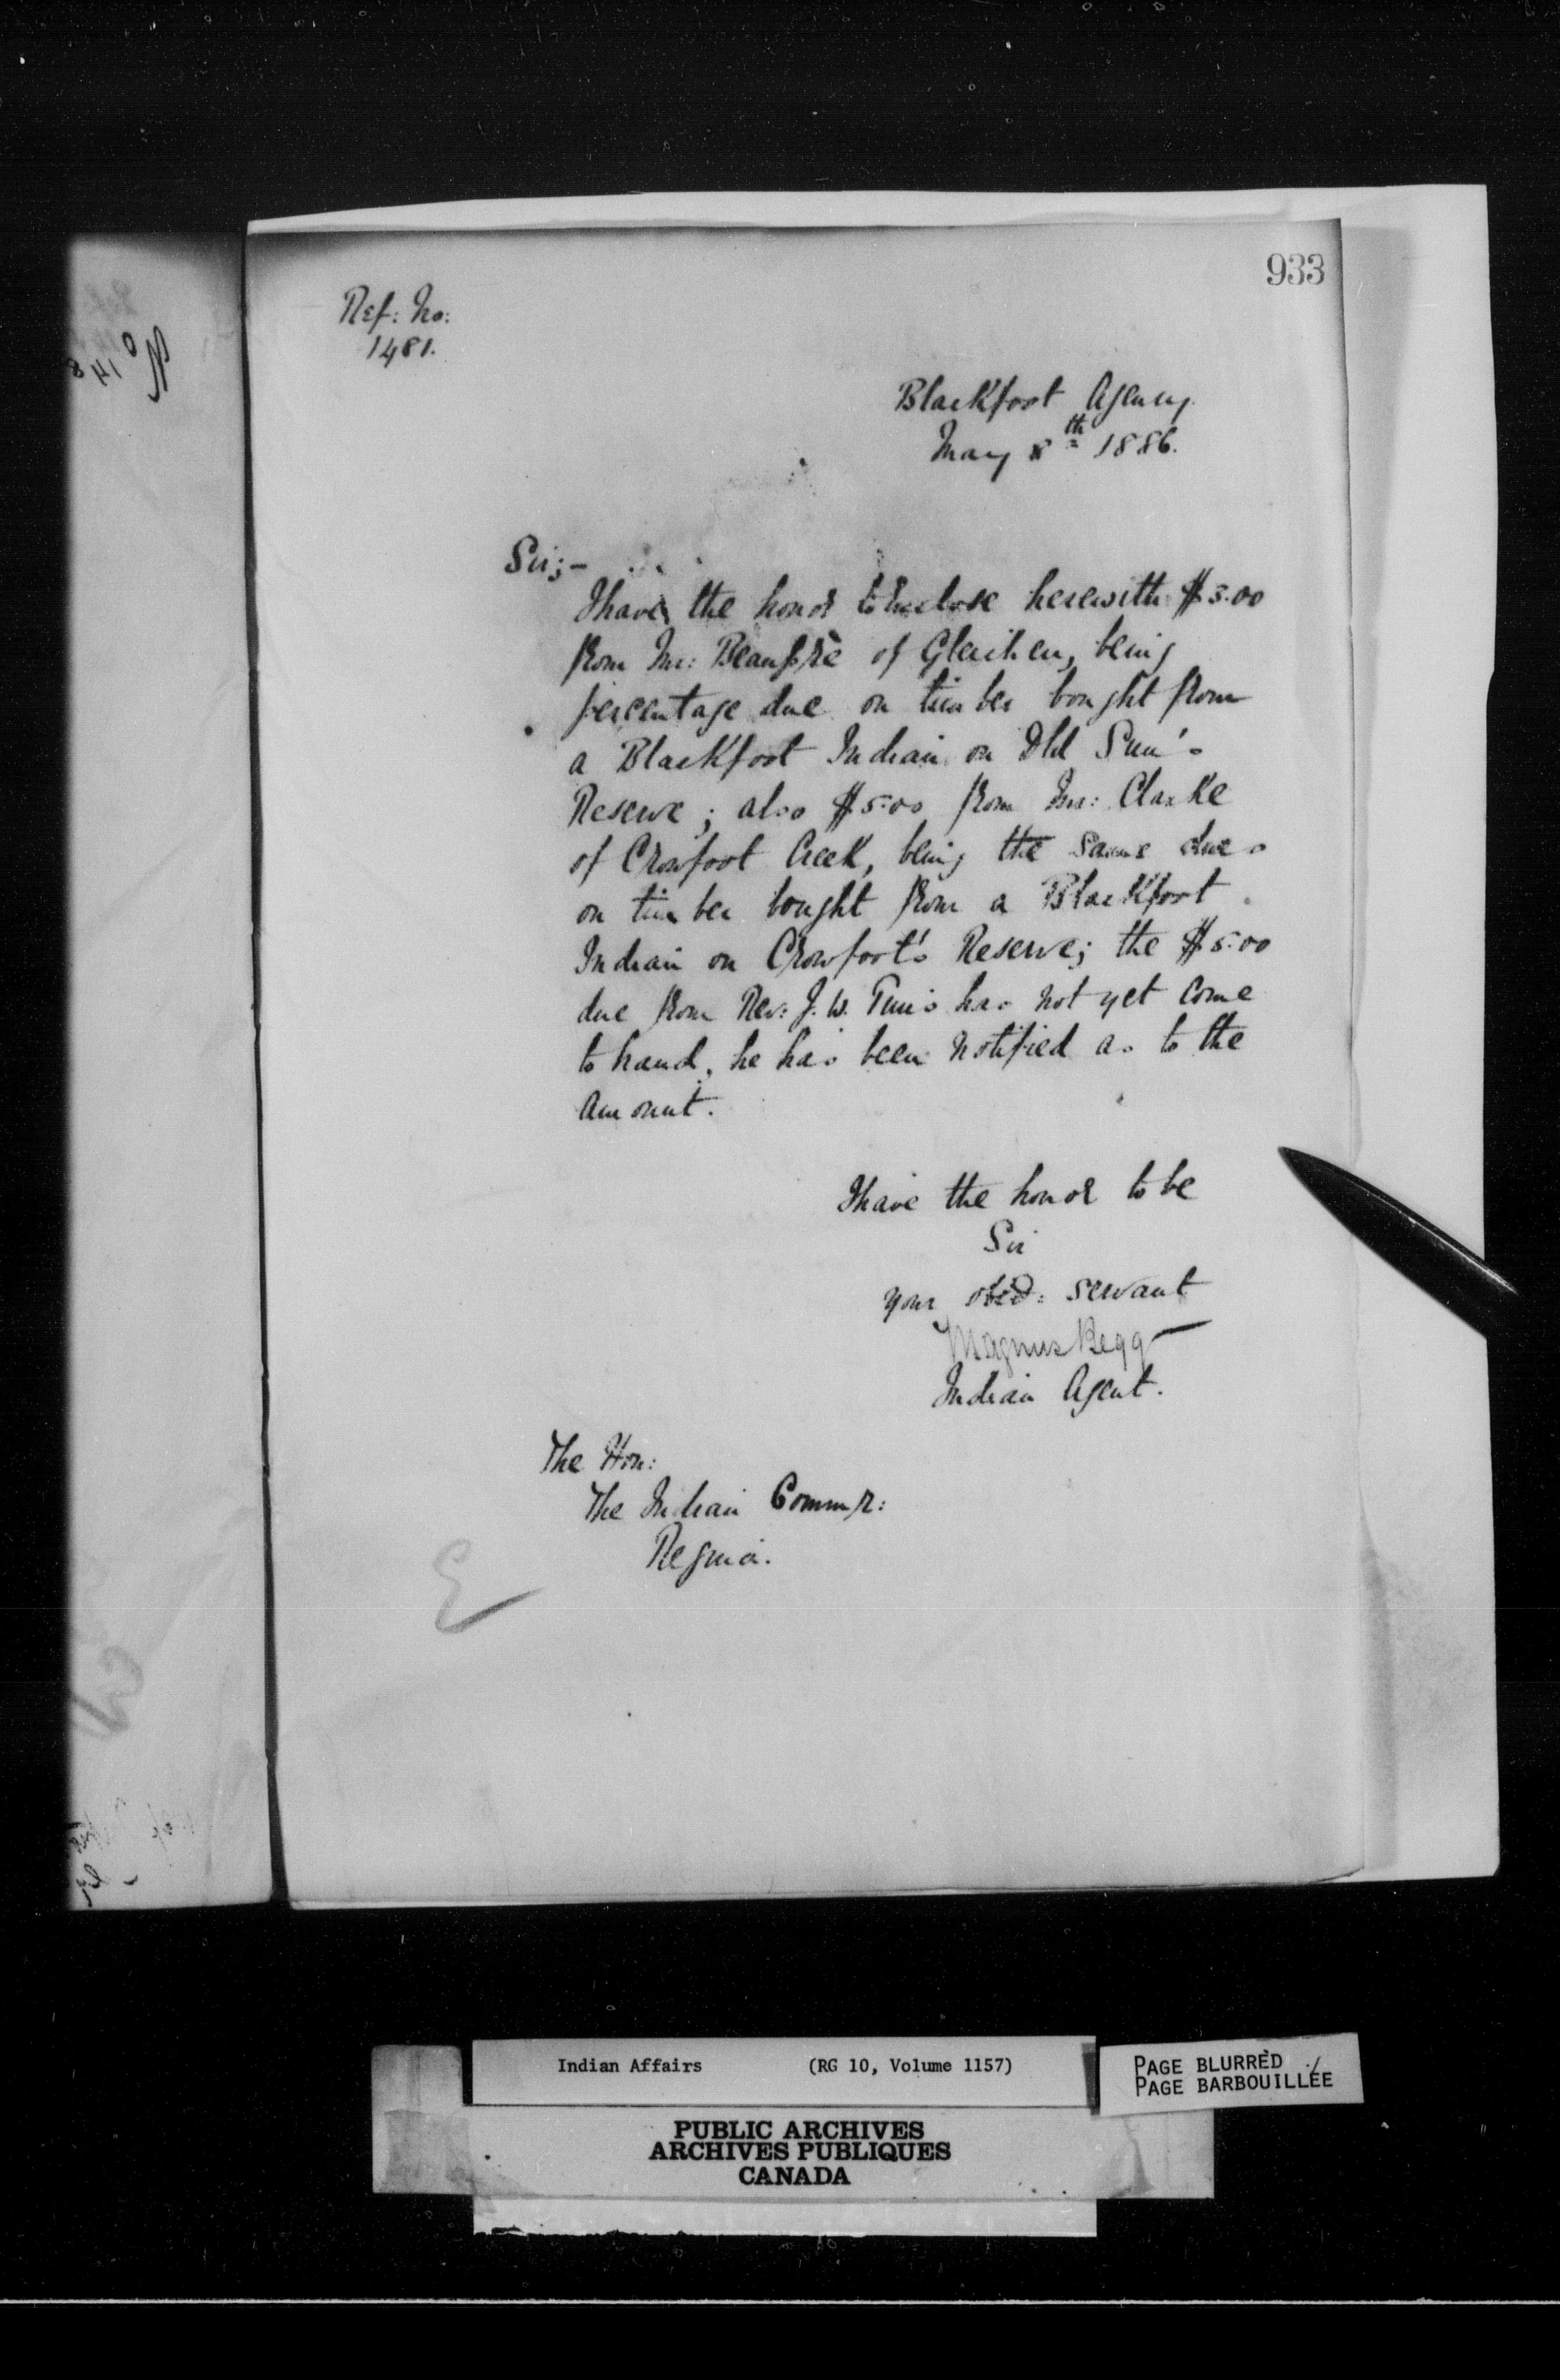 933
Ref: No:
1481.
Blackfoot Agency.
May 8th 1886.
Sir;-
I have the honor to enclose herewith $5.00
from Mr: Beaupré of Gleichen, being
percentage due on timber bought from
a Blackfoot Indian on Old Sun's
Reserve; also $5.00 from Mr: Clarke
of Crowfoot Creek, being the same due
on timber bought from a Blackfoot
Indian on Crowfoot's Reserve; the $5.00
due from Rev: J. W. Tims has not yet come
to hand, he has been notified as to the
amount.
I have the honor to be
Sir
your obed: servant
Magnus Begg
Indian Agent.
The Hon:
The Indian Commr:
Regina.
Indian Affairs (RG 10, Volume 1157)
PAGE BLURRED
PAGE BARBOUILLÉE
PUBLIC ARCHIVES
ARCHIVES PUBLIQUES
CANADA